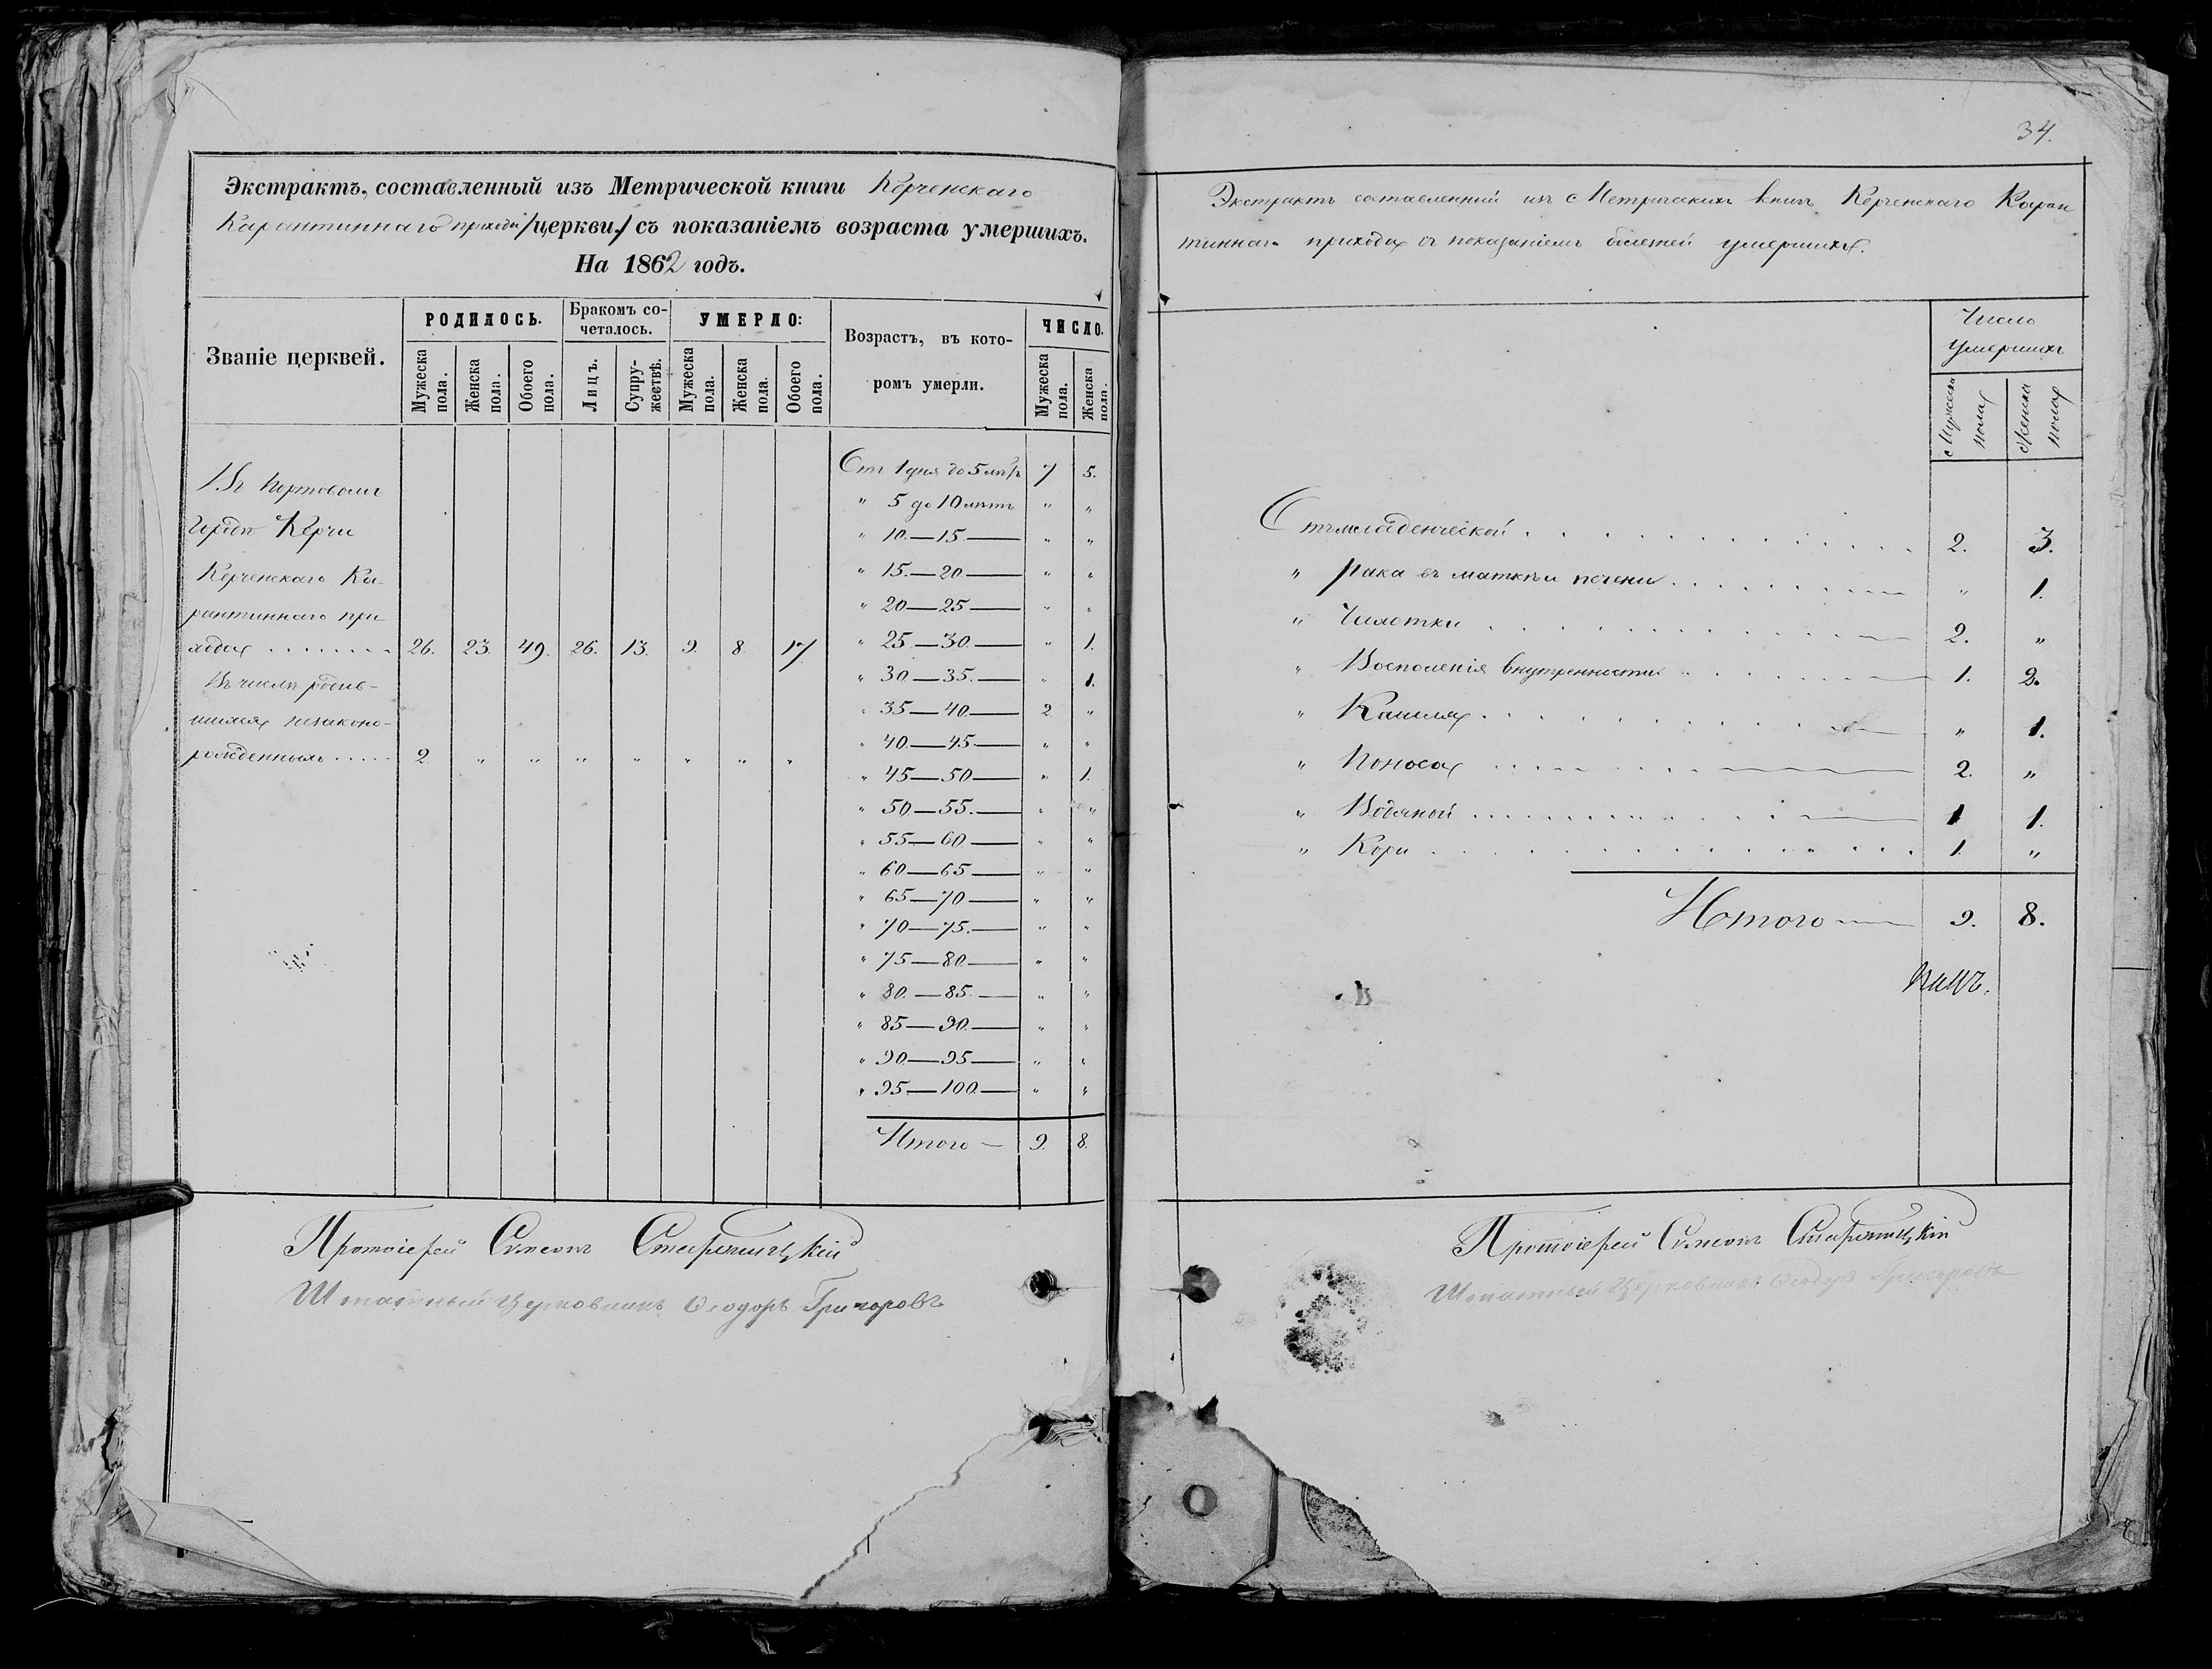 Экстрактъ, составленный изъ Метрической книги Керченскаго
Карантиннаго прихода /церкви,/ съ показаніемъ возраста умершихъ.
На 1862 годъ.
Званіе церквей.
РОДИЛОСЬ.
Бракомъ со-
четалось.
УМЕРЛО:
Возрастъ, въ кото-
ромъ умерли.
ЧИСЛО.
Мужеска пола.
Женска пола.
Обоего пола.
Лицъ.
Супру-
жествъ.
Мужеска пола.
Женска пола.
Обоего пола.
Мужеска пола.
Женска пола.
Въ Портовомъ
Городѣ Керчи
Керченскаго Ка-
рантиннаго при
хода ........ 26. 23. 49. 26. 13. 9. 8. 17.
Въ числѣ родив-
шихся незаконо-
рожденныхъ ..... 2 " " " " " " "
Отъ 1 дня до 5 лѣтъ 7 5.
" 5 до 10 лѣтъ " "
" 10.—15.— " "
" 15.—20.— " "
" 20—25— " "
" 25.—30.— " 1.
" 30—35.— " 1.
" 35—40.— 2. "
" 40.—45.— " "
" 45—50— " 1.
" 50—55.— " "
" 55—60— " "
" 60—65— " "
" 65—70— " "
" 70—75.— " "
" 75—80.— " "
" 80.—85.— " "
" 85—90.— " "
" 90.—95— " "
" 95—100.— " "
Итого — 9. 8.
Протоіерей Симеонъ Старницкій
Штатный Церковникъ Ѳеодоръ Григоровъ
34.
Экстрактъ составленный изъ Метрическихъ книгъ Керченскаго Каран
тиннаго прихода съ показаніемъ болезней умершихъ.
Число
Умершихъ
Мужска пола
Женска пола
Отъ младенческой 2. 3.
" рака въ маткѣ и печени " 1.
" Чахотки 2. "
" Воспаленія внутренности 1. 2.
" Кашля " 1.
" Поноса 2. "
" Водяной 1 1.
" Кори 1. "
Итого — 9. 8.
Протоіерей Симеонъ Старницкій
Штатный Церковникъ Ѳеодоръ Григоровъ